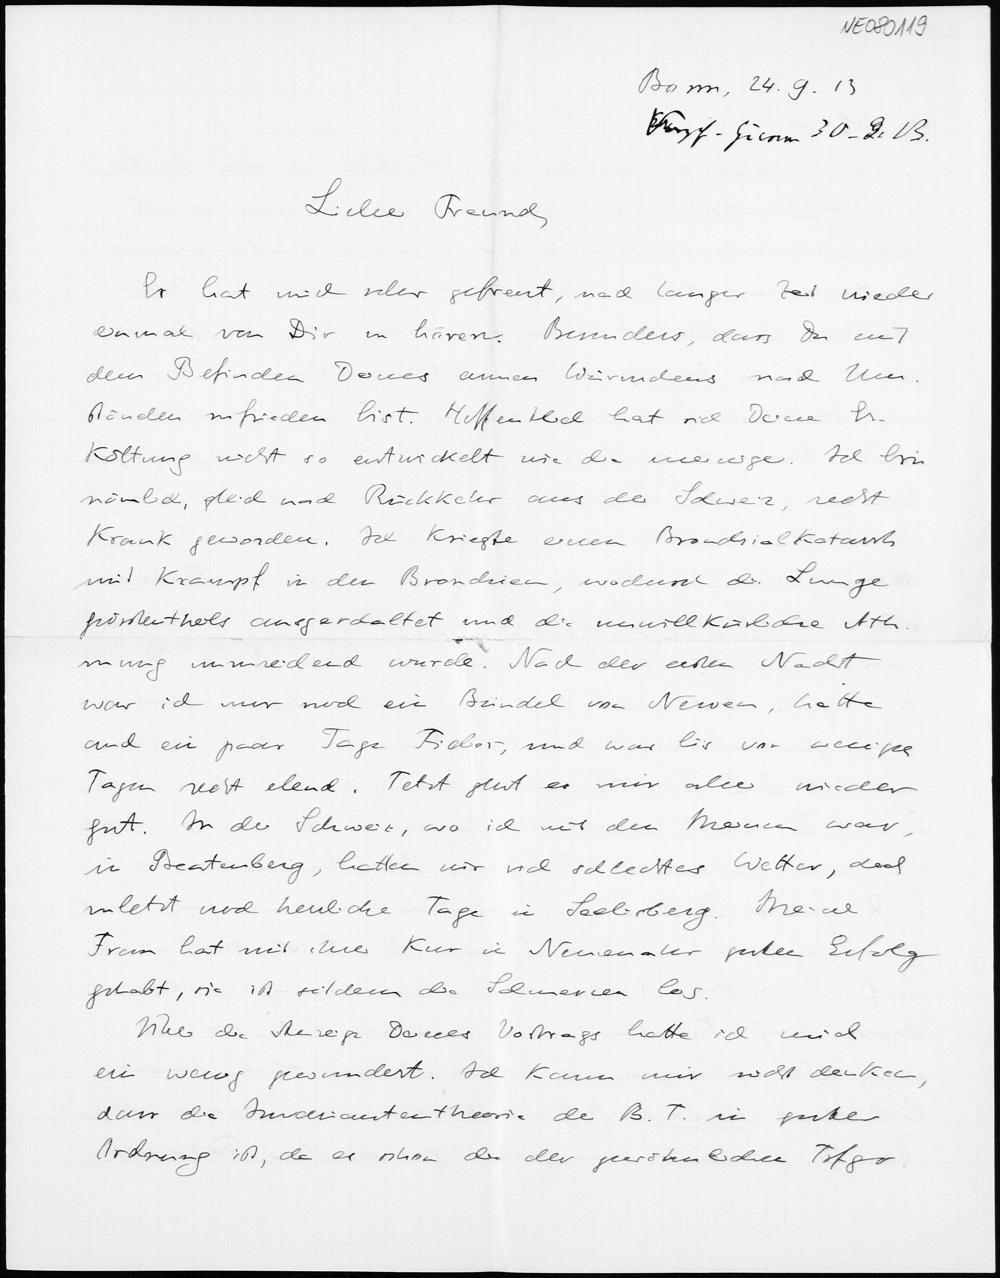 NE080119
Bonn, 24. 9. 13
30. 9. 13.
Lieber Freund,
Es hat mich sehr gefreut, nach langer Zeit wieder
einmal von Dir zu hören. Besonders, dass Du mit
dem Befinden Deines armen Würmchens nach Um-
ständen zufrieden bist. Hoffentlich hat sich Deine Er-
kältung nicht so entwickelt wie die meinige. Ich bin
nämlich, gleich nach Rückkehr aus der Schweiz, recht
krank geworden. Ich kriegte einen Bronchialkatarrh
mit Krampf in den Bronchien, wodurch die Lunge
grösstentheils ausgeschaltet und die unwillkürliche Ath-
mung unzureichend wurde. Nach der ersten Nacht
war ich nur noch ein Bündel von Nerven, hatte
auch ein paar Tage Fieber, und war bis vor wenigen
Tagen recht elend. Jetzt geht es mir aber wieder
gut. In der Schweiz, wo ich mit den Meinen war,
in Beatenberg, hatten wir viel schlechtes Wetter, doch
zuletzt noch herrliche Tage in Seelisberg. Meine
Frau hat mit ihrer Kur in Neuenahr guten Erfolg
gehabt, sie ist seitdem die Schmerzen los.
Über die Anzeige Deines Vortrags hatte ich mich
ein wenig gewundert. Ich kann mir nicht denken,
dass die Invariantentheorie der B. T. in guter
Ordnung ist, da es schon die der gewöhnlichen Tsfgr.